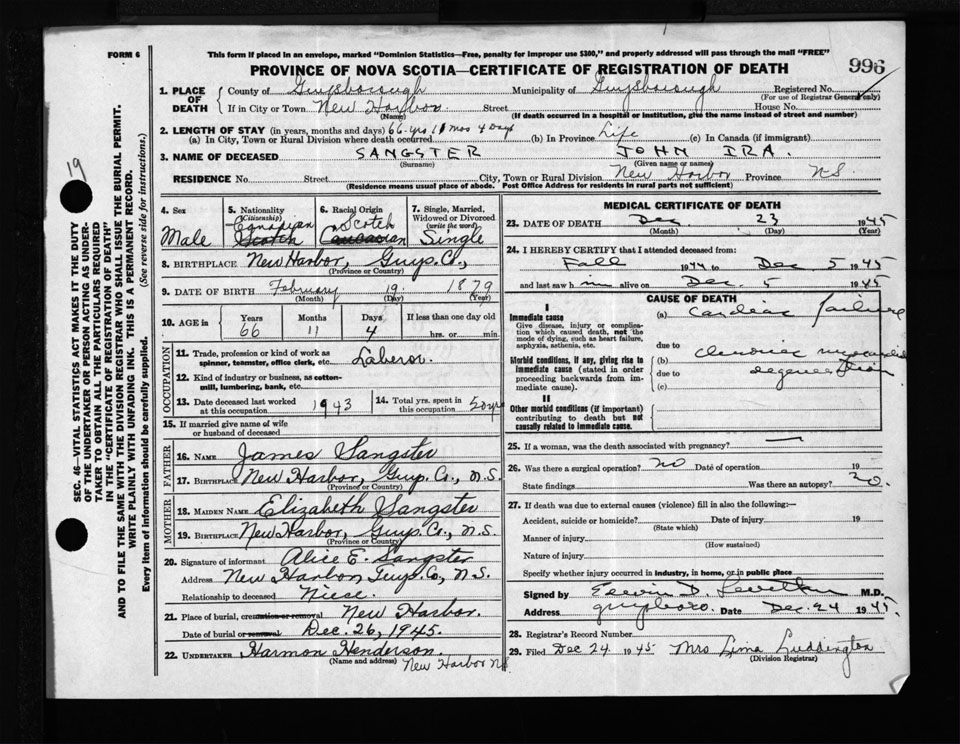 FORM 6
This form if placed in an envelope, marked "Dominion Statistics—Free, penalty for improper use $300," and properly addressed will pass through the mail "FREE"
PROVINCE OF NOVA SCOTIA—CERTIFICATE OF REGISTRATION OF DEATH
996
19
SEC. 46—VITAL STATISTICS ACT MAKES IT THE DUTY
OF THE UNDERTAKER OR PERSON ACTING AS UNDER-
TAKER TO OBTAIN ALL THE PARTICULARS REQUIRED
IN THE "CERTIFICATE OF REGISTRATION OF DEATH"
AND TO FILE THE SAME WITH THE DIVISION REGISTRAR WHO SHALL ISSUE THE BURIAL PERMIT.
WRITE PLAINLY WITH UNFADING INK. THIS IS A PERMANENT RECORD.
Every item of information should be carefully supplied. (See reverse side for instructions.)
1. PLACE OF DEATH County of Guysborough Municipality of Guysborough Registered No.
(For use of Registrar General only)
If in City or Town New Harbor Street House No.
(Name) (If death occurred in a hospital or institution, give the name instead of street and number)
2. LENGTH OF STAY (in years, months and days) 66 yrs 11 mos 4 days
(a) In City, Town or Rural Division where death occurred (b) In Province Life (c) In Canada (if immigrant)
3. NAME OF DECEASED SANGSTER JOHN IRA.
(Surname) (Given name or names)
RESIDENCE No. Street City, Town or Rural Division New Harbor Province N.S.
(Residence means usual place of abode. Post Office Address for residents in rural parts not sufficient)
4. Sex Male
5. Nationality (Citizenship) Canadian Scotch
6. Racial Origin Scotch Caucasian
7. Single, Married, Widowed or Divorced (write the word) Single
8. BIRTHPLACE New Harbor, Guys. Co.,
(Province or Country)
9. DATE OF BIRTH February 19 1879
(Month) (Day) (Year)
10. AGE in Years 66 Months 11 Days 4 If less than one day old hrs. or min.
OCCUPATION
11. Trade, profession or kind of work as spinner, teamster, office clerk, etc. Laberor.
12. Kind of industry or business, as cotton-mill, lumbering, bank, etc.
13. Date deceased last worked at this occupation 1943
14. Total yrs. spent in this occupation 50 yrs
15. If married give name of wife or husband of deceased
FATHER
16. NAME James Sangster
17. BIRTHPLACE New Harbor, Guys. Co., N.S.
(Province or Country)
MOTHER
18. MAIDEN NAME Elizabeth Sangster
19. BIRTHPLACE New Harbor, Guys. Co., N.S.
(Province or Country)
20. Signature of informant Alice E. Sangster
Address New Harbor Guys. Co, N.S.
Relationship to deceased Niece.
21. Place of burial, cremation or removal New Harbor.
Date of burial or removal Dec. 26, 1945.
22. UNDERTAKER Harmon Henderson.
(Name and address) New Harbor NS
MEDICAL CERTIFICATE OF DEATH
23. DATE OF DEATH Dec 23 1945
(Month) (Day) (Year)
24. I HEREBY CERTIFY that I attended deceased from:
Fall 1944 to Dec 5 1945
and last saw him alive on Dec. 5 1945
CAUSE OF DEATH
I
Immediate cause
Give disease, injury or complication which caused death, not the mode of dying, such as heart failure, asphyxia, asthenia, etc.
(a) Cardiac failure
due to
Morbid conditions, if any, giving rise to immediate cause (stated in order proceeding backwards from immediate cause).
(b) Chronic myocardial
due to degeneration
(c)
II
Other morbid conditions (if important) contributing to death but not causally related to immediate cause.
25. If a woman, was the death associated with pregnancy? —
26. Was there a surgical operation? no Date of operation 19
State findings Was there an autopsy? no.
27. If death was due to external causes (violence) fill in also the following:—
Accident, suicide or homicide? Date of injury 19
(State which)
Manner of injury
(How sustained)
Nature of injury
Specify whether injury occurred in industry, in home, or in public place
Signed by M.D.
Address Guysboro. Date Dec. 24 1945.
28. Registrar's Record Number
29. Filed Dec 24 1945 Mrs Lima Luddington
(Division Registrar)